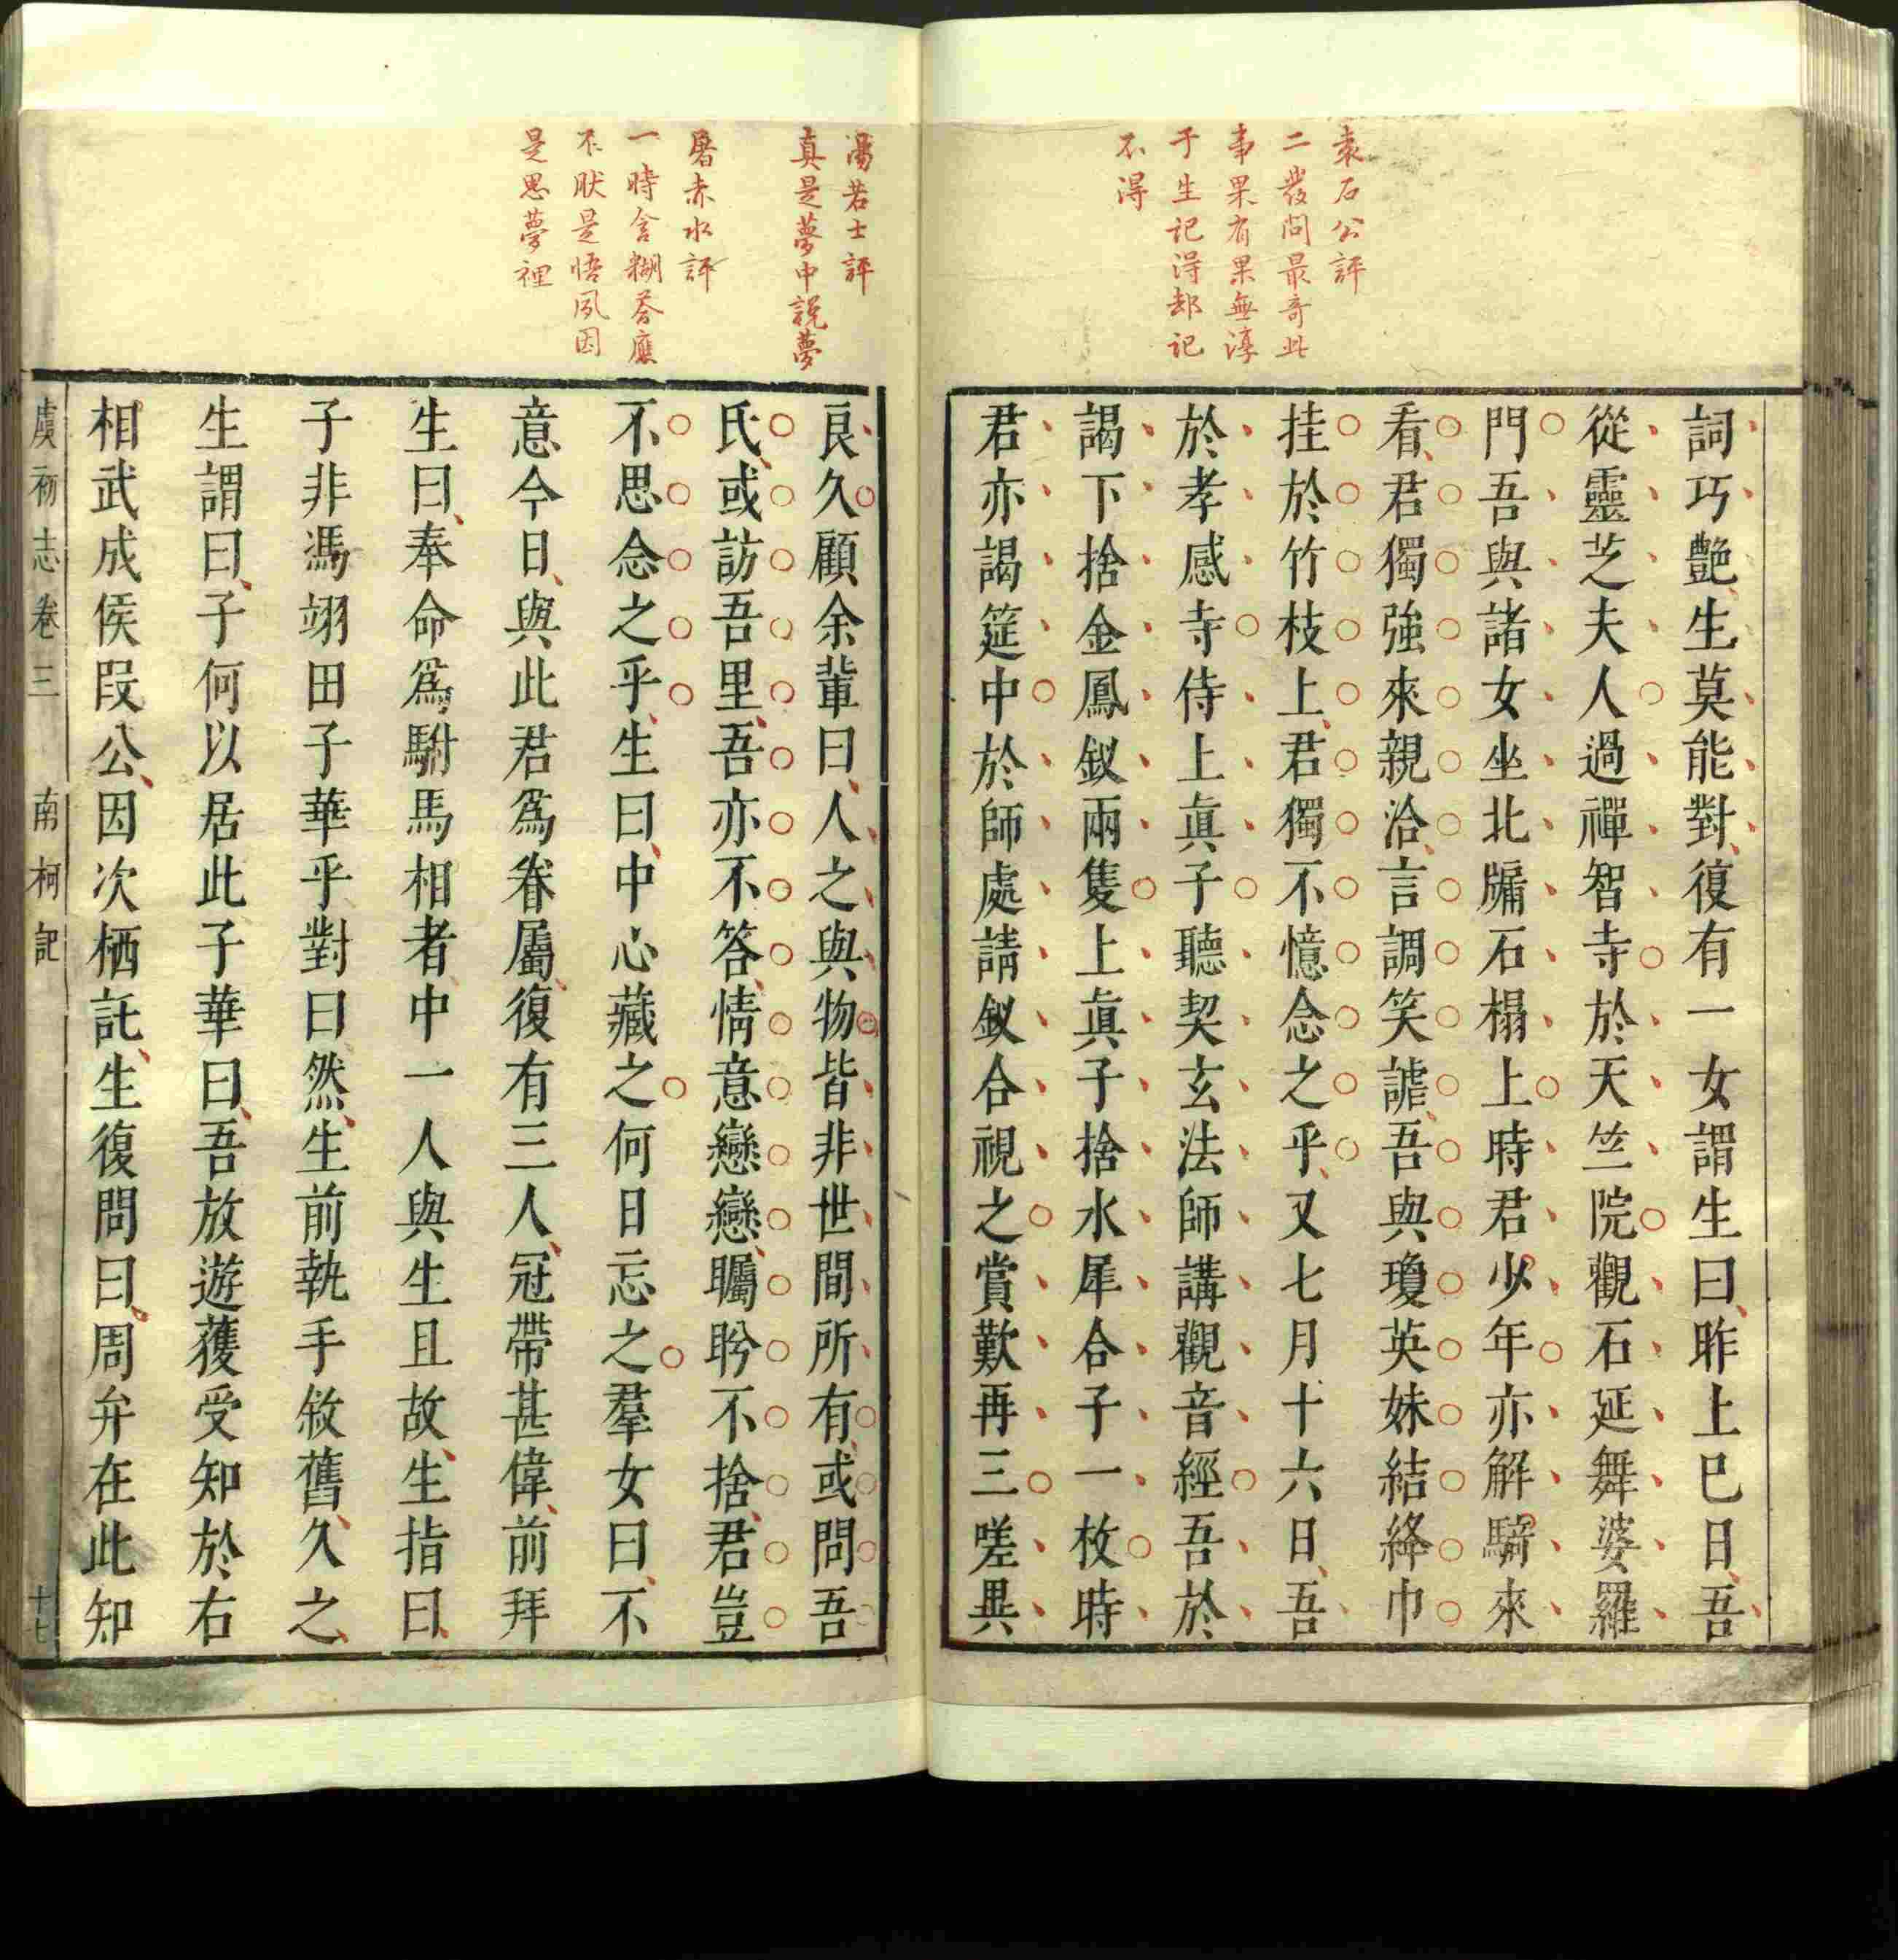 袁石公評
二發問最奇此
事果有果無淳
于生記得却記
不得
詞巧艷生莫能對復有一女謂生曰昨上巳日吾
從靈芝夫人過禪智寺於天竺院觀石延舞婆羅
門吾與諸女坐北牖石榻上時君少年亦解騎來
看君獨強來親洽言調笑謔吾與瓊英妹結絳巾
挂於竹枝上君獨不憶念之乎又七月十六日吾
於孝感寺侍上眞子聽契玄法師講觀音經吾於
講下捨金鳳釵兩隻上眞子捨水犀合子一枚時
君亦講筵中於師處請釵合視之賞歎再三嗟異
湯若士評
真是夢中說夢
屠赤水評
一時含糊荅應
不肰是悟夙因
是思夢裡
良久顧余輩曰人之與物皆非世間所有或問吾
氏或訪吾里吾亦不答情意戀戀矚盻不捨君豈
不思念之乎生曰中心藏之何日忘之羣女曰不
意今日與此君爲眷屬復有三人冠帶甚偉前拜
生曰奉命爲駙馬相者中一人與生且故生指曰
子非馮翊田子華乎對曰然生前執手敘舊久之
生謂曰子何以居此子華曰吾放遊獲受知於右
相武成侯叚公因次栖託生復問曰周弁在此知
虞初志卷三 南柯記 十七